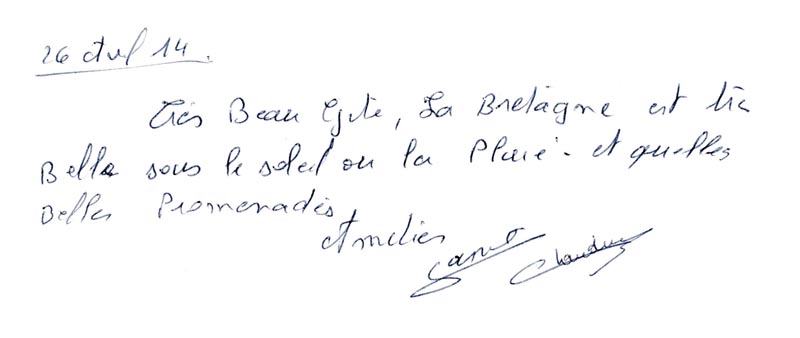 26 avril 14.
Très Beau Gîte, La Bretagne est très
Belle sous le soleil ou la Pluie - et quelles
Belles Promenades
Amitiés